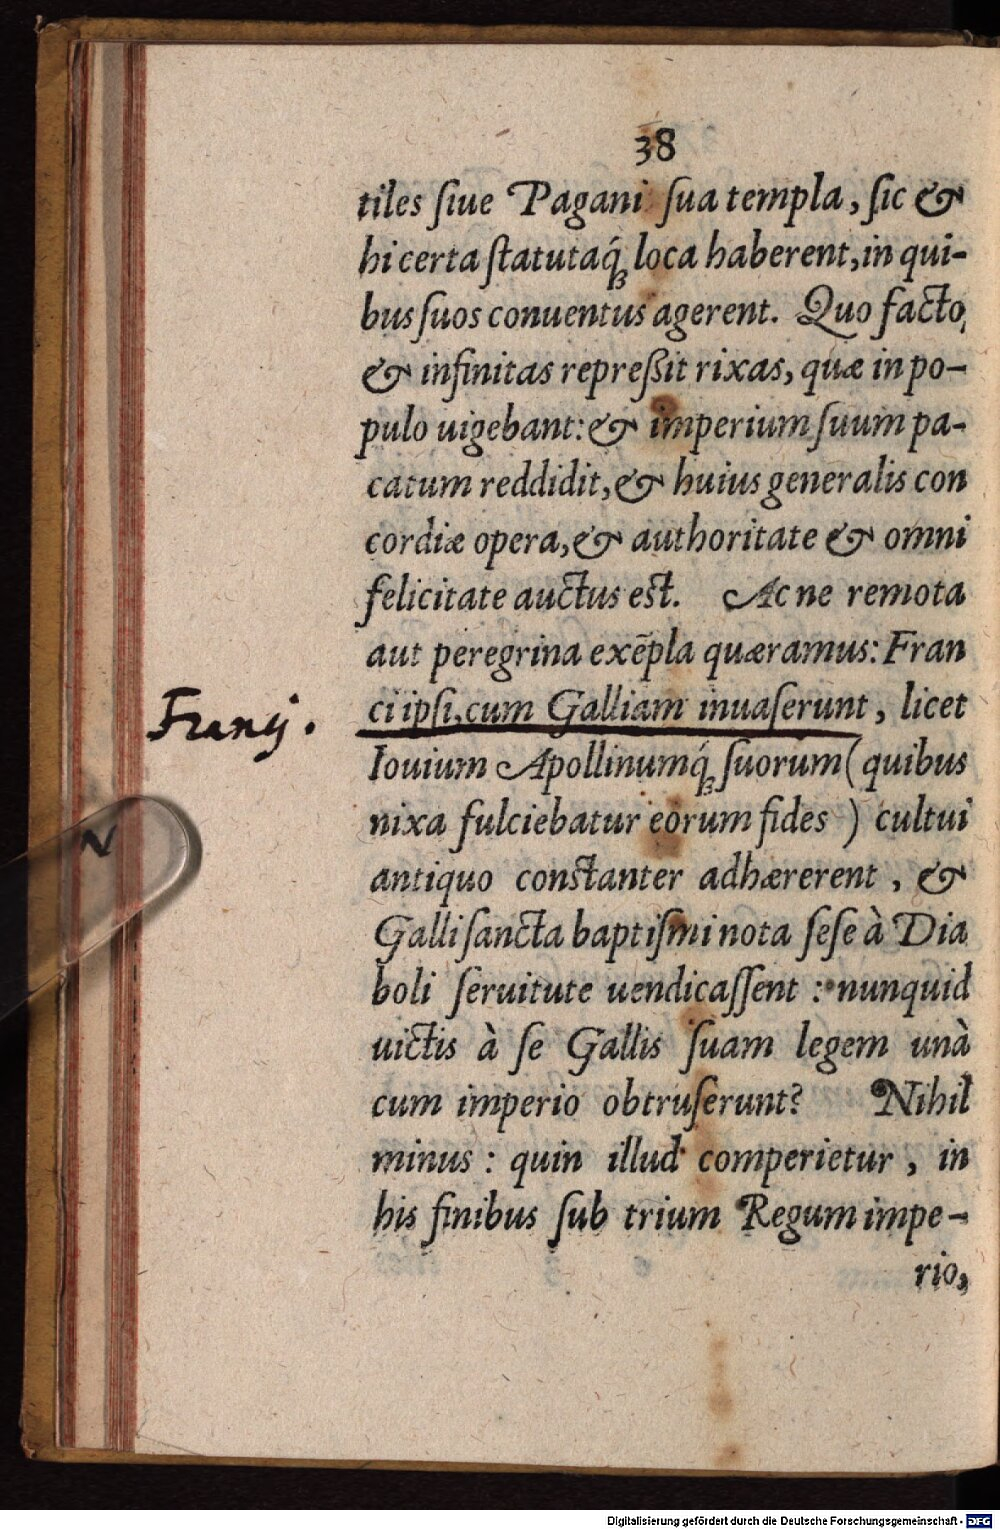 38
tiles ſiue Pagani ſua templa, ſic &
hi certa ſtatutaq́ꝫ loca haberent, in qui-
bus ſuos conuentus agerent. Quo facto,
& infinitas repreßit rixas, quæ in po-
pulo uigebant: & imperium ſuum pa-
catum reddidit, & huius generalis con
cordiæ opera, & authoritate & omni
felicitate auctus est. Ac ne remota
aut peregrina exẽpla quæramus: Fran
ci ipſi, cum Galliam inuaſerunt, licet
Franĳ.
Iouium Apollinumq́ꝫ ſuorum (quibus
nixa fulciebatur eorum fides) cultui
antiquo constanter adhærerent, &
Galli ſancta baptiſmi nota ſeſe à Dia
boli ſeruitute uendicaſſent: nunquid
uictis à ſe Gallis ſuam legem unà
cum imperio obtruſerunt? Nihil
minus: quin illud comperietur, in
his finibus ſub trium Regum impe-
rio,
N
Digitalisierung gefördert durch die Deutsche Forschungsgemeinschaft - DFG